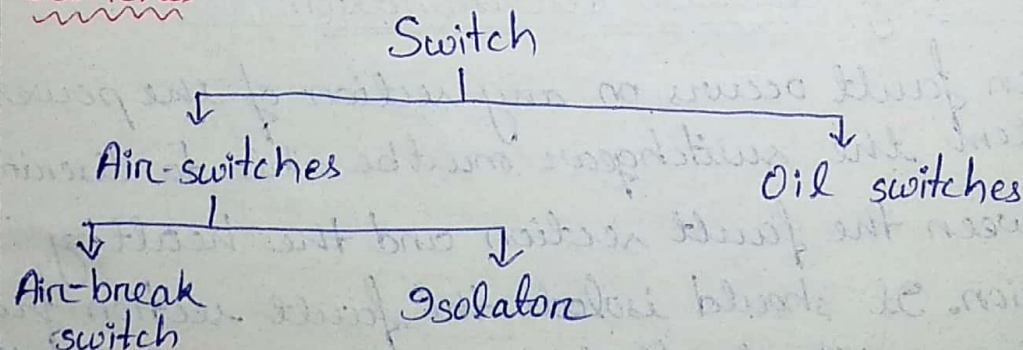 Switch
Air-switches
Oil switches
Air-break
switch
Isolator